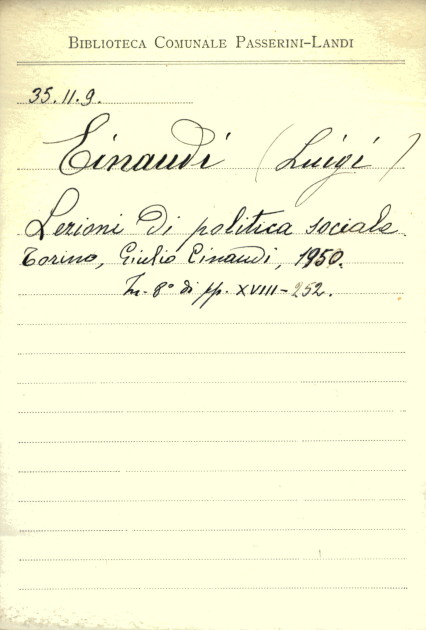 BIBLIOTECA COMUNALE PASSERINI-LANDI
35.11.9.
Einaudi (Luigi)
Lezioni di politica sociale.
Torino, Giulio Einaudi, 1950.
In-8° di pp. XVIII-252.